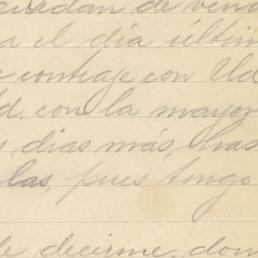 quedan de ven
a el día últim
contraje con Ud
d. con la mayor
s dias más, has
las, pues tengo
de decirme, don